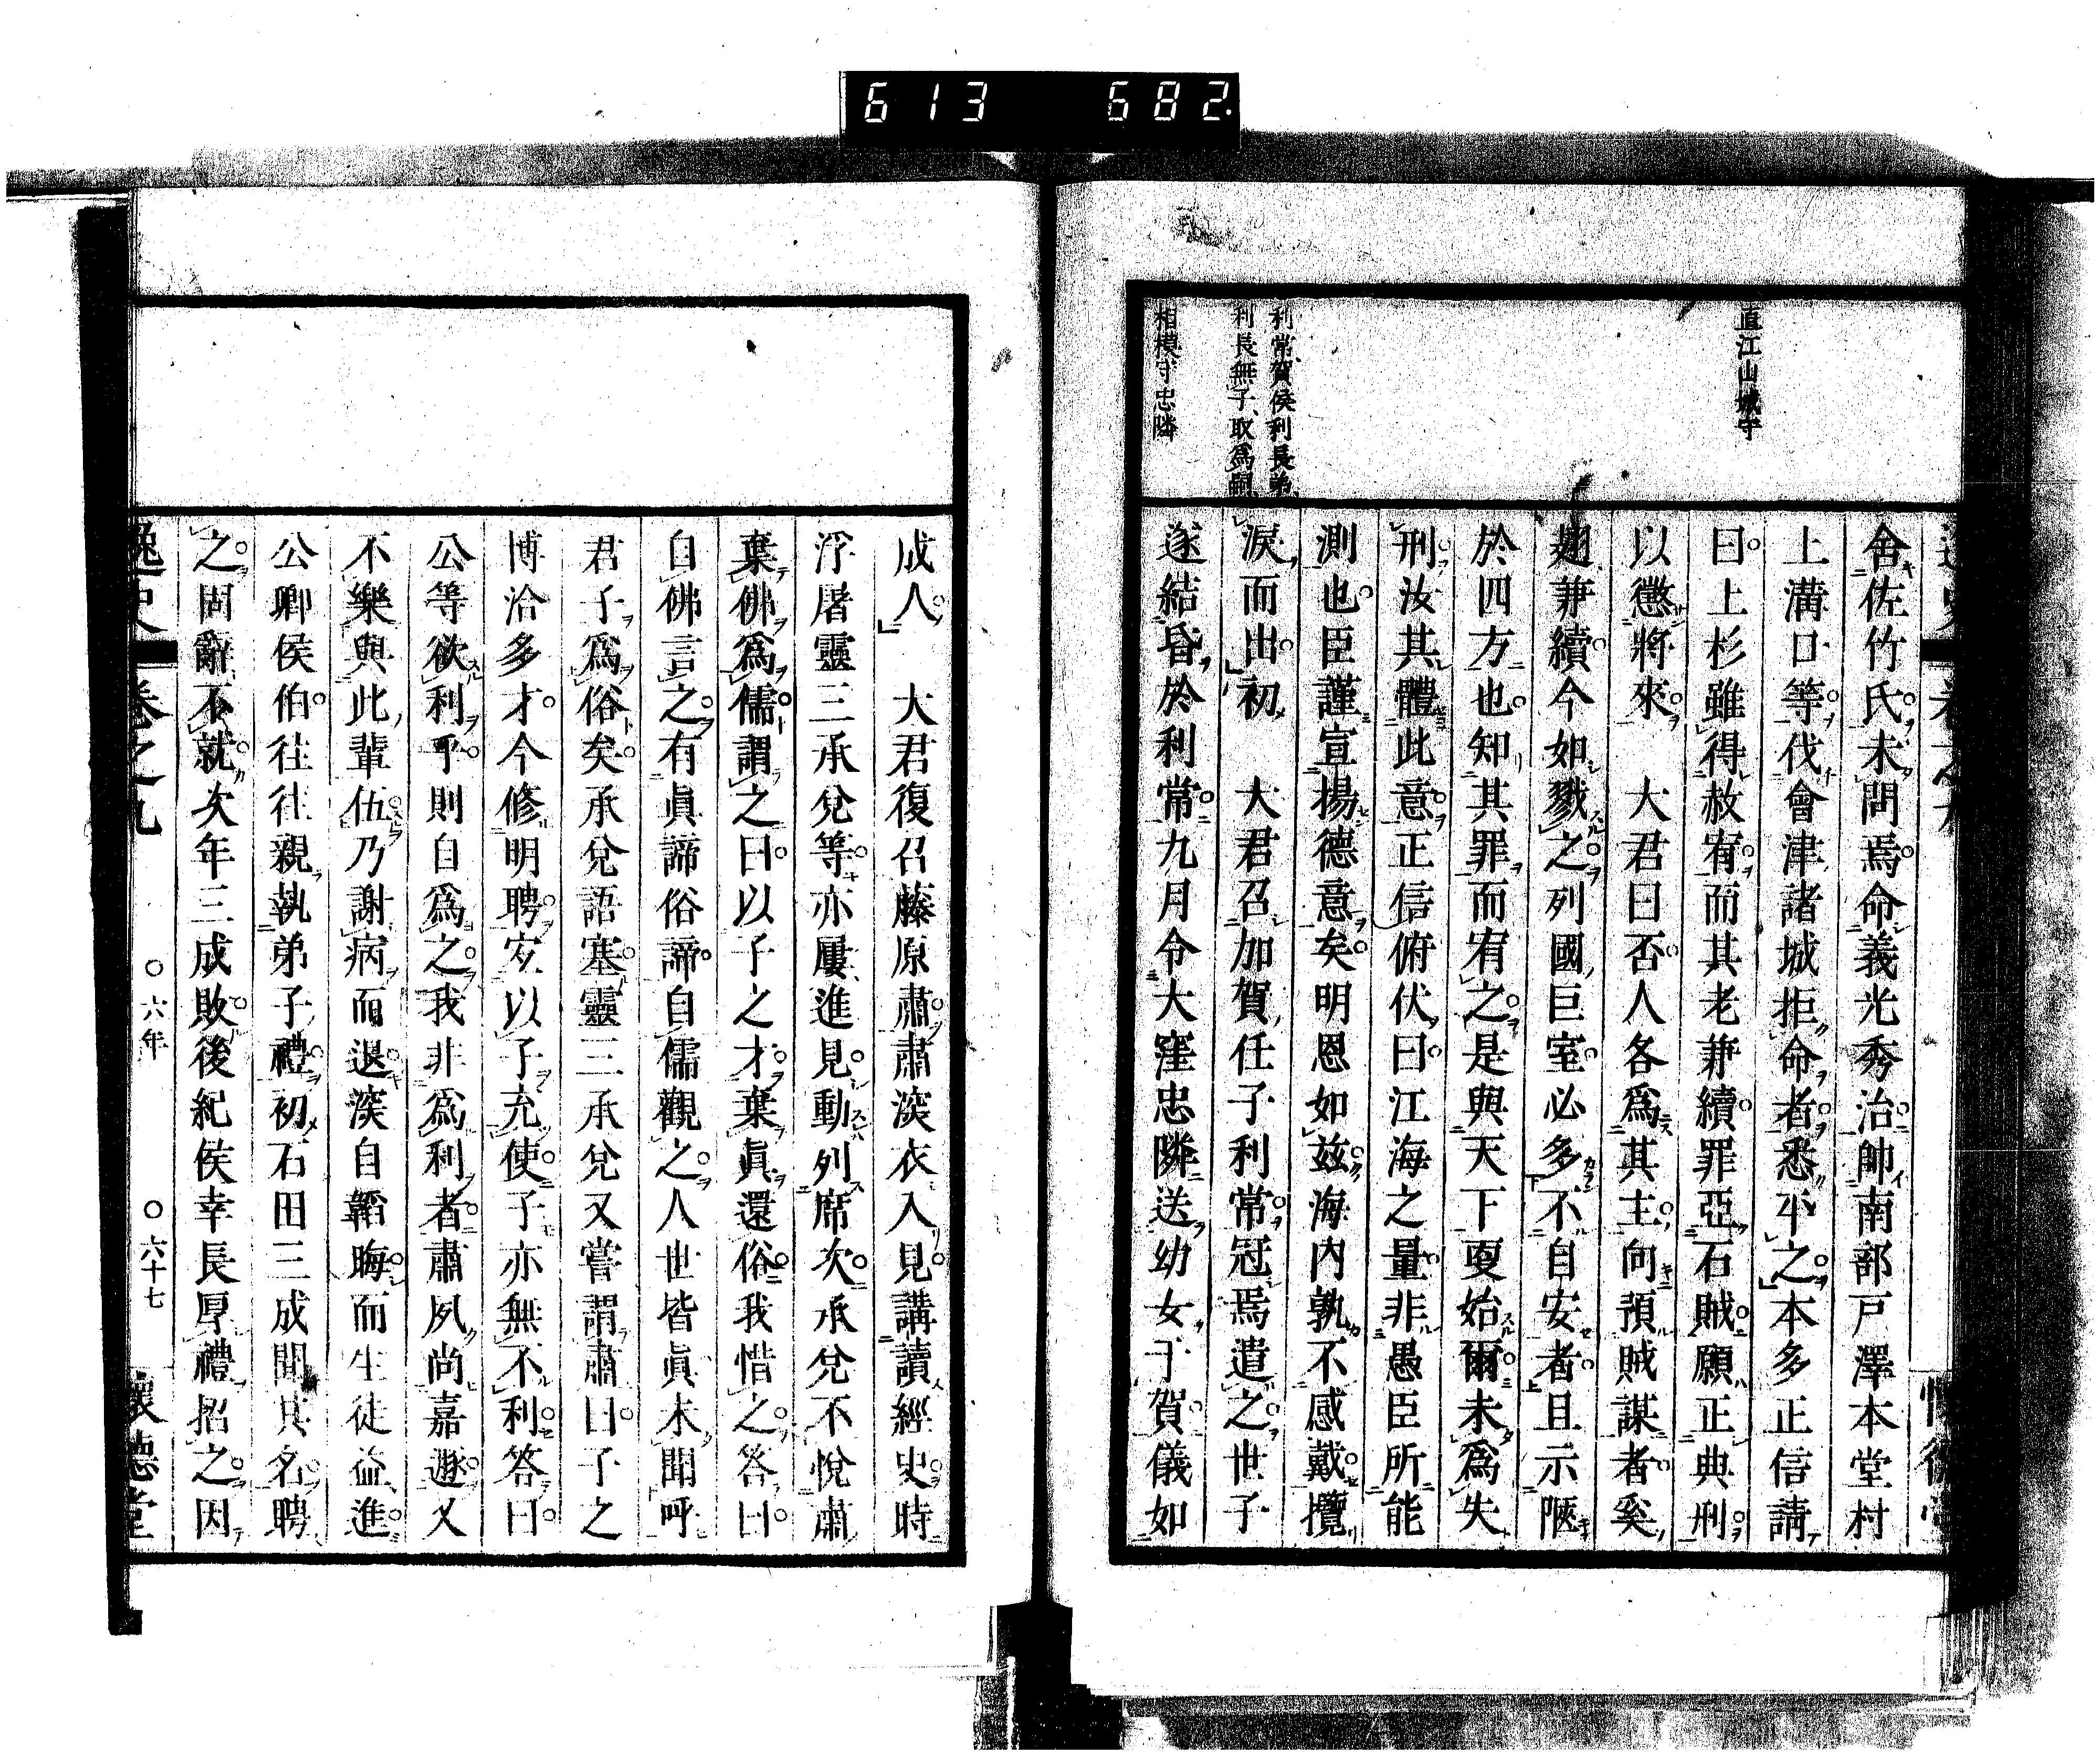 613 682
直江山城守
利常賀侯利長弟、
利長無子、取爲嗣、
相模守忠隣
舍佐竹氏未問焉命義光秀治帥南部戸澤本堂村
上溝口等伐會津諸城拒命者悉平之本多正信請
曰上杉雖得赦宥而其老兼續罪亞石賊願正典刑
以懲將來　大君曰否人各爲其主向預賊謀者奚
翅兼續今如戮之列國巨室必多不自安者且示陿
於四方也知其罪而宥之是與天下更始爾未爲失
刑汝其體此意正信俯伏曰江海之量非愚臣所能
測也臣謹宣揚德意矣明恩如玆海內孰不感戴攬
淚而出初　大君召加賀任子利常冠焉遣之世子
遂結昏於利常九月令大窪忠隣送幼女于賀儀如
成人　大君復召藤原肅肅深衣入見講讀經史時
浮屠靈三承兌等亦屢進見動列席次承兌不悅肅
棄佛爲儒謂之曰以子之才棄眞還俗我惜之答曰
自佛言之有眞諦俗諦自儒觀之人世皆眞未聞呼
君子爲俗矣承兌語塞靈三承兌又嘗謂肅曰子之
博洽多才今修明聘妄以子充使子亦無不利答曰
公等欲利乎則自爲之我非爲利者肅夙尚嘉遯又
不樂與此輩伍乃謝病而退深自韜晦而生徒益進
公卿侯伯往往親執弟子禮初石田三成聞其名聘
之固辭不就次年三成敗後紀侯幸長厚禮招之因
逸史　卷之九　○六年　○六十七　懷德堂